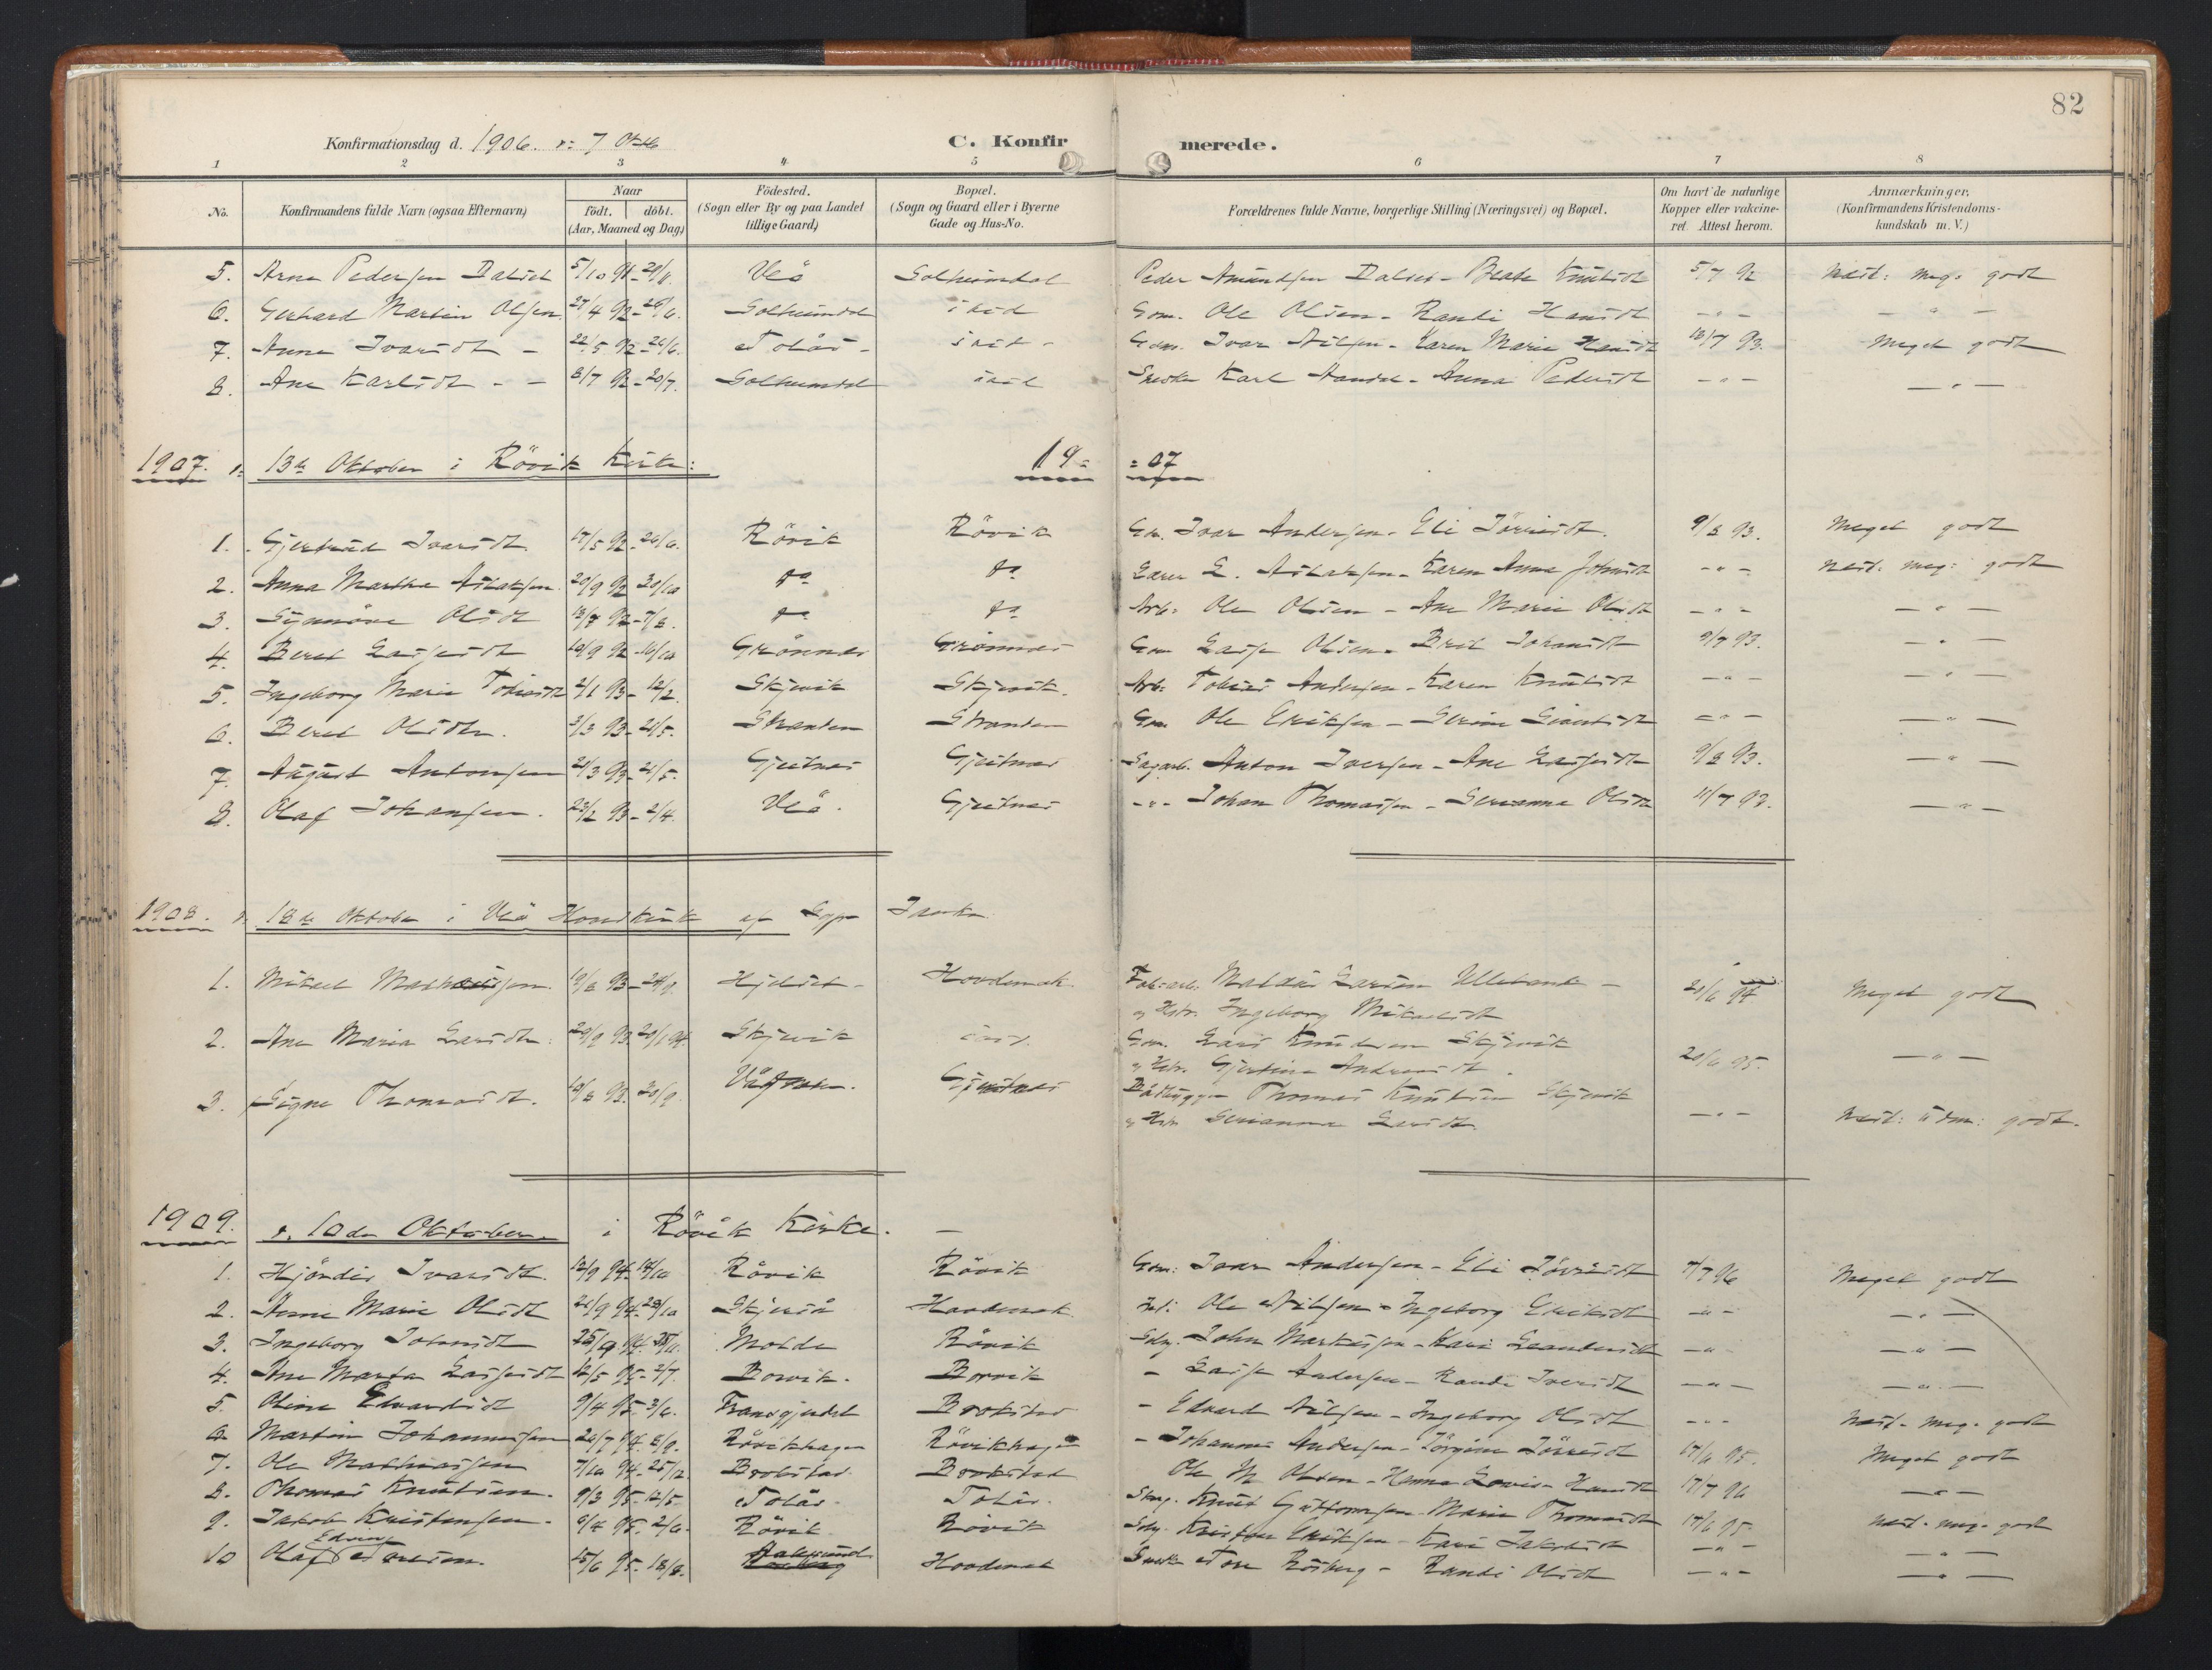 82
Konfirmationsdag d. 1906. d: 7 Oktb
C. Konfirmerede.
1 2 3 4 5 6 7 8
No. Konfirmandens fulde Navn (ogsaa Efternavn) Naar født. døbt. (Aar, Maaned og Dag) Födested. (Sogn eller By og paa Landet tillige Gaard) Bopæl. (Sogn og Gaard eller i Byerne Gade og Hus-No. Forældrenes fulde Navne, borgerlige Stilling (Næringsvei) og Bopæl. Om havt de naturlige Kopper eller vakcineret. Attest herom. Anmærkninger. (Konfirmandens Kristendomskundskab m. V.)
5. Arne Pedersen Dalset 5/10 91 Veö Solheimdal Peder Amundsen Dalset - Beate Knutsdt 5/7 92 Næst: meg: godt
6. Gerhard Martin Olsen 27/4 92 - 26/6. Solheimdal ibid Gm. Ole Olsen - Randi Hansdt - " - - " -
7. Anna Ivarsdt - 22/5 92 - 26/6. Tolås - ibid - Gm. Ivar Nilsen - Karen Marie Hansdt 13/7 93. Meget godt
8. Ane Karlsdt - - 8/7 92 - 20/7. Solheimdal ibid Karl - Anna Pedersdt - " - - " -
1907. d. 13de Oktober i Rövik Kirke: 19= =07
1. Gjertrud Ivarsdt. 17/5 92 - 26/6. Rövik Rövik Gm. Ivar Andersen - Eli Jörensdt. 9/8 93. Meget godt
2. Anna Martha Aslaksen 20/9 92 30/10 do do Lærer L. Aslaksen - Karen Anna Johnsdt - " - Næst. meg: godt
3. Synnöve Olsdt 13/7 92 - 7/8. do do Arb: Ole Olsen - Ane Marie Olsdt - " - - " -
4. Beret Lassesdt 10/9 92 - 16/10 Grönnes Grönnes Gm Lasse Olsen - Bret Johansdt 9/7 93. - " -
5. Ingeborg Marie Tobiasdt 2/1 93 - 12/2. Skjevik Skjevik. Arb: Tobias Andersen - Karen Knutsdt - " - - " -
6. Beret Olsdtr. 3/3 93 - 21/5. Stranden Stranden Gm. Ole Eriksen - Serine - " - - " -
7. August Antonsen 21/3 93 - 21/5. Gjeitnes Gjeitnes Sagarb. Anton Iversen - Ane Lassesdt 9/8 93. - " -
8. Olaf Johansen. 23/2 93 - 2/4. Veö. Gjeitnes - " - Johan Thomassen - Serianna Olsdt 11/7 93. - " -
1908. d. 18de Oktober i Veö Hovedkirke af Sgpr
1. Mikael Mathæussen. 19/8 93 - 24/9. Hjelset - Hovdenak. Fab:arb. Larsen Ullebank - 21/6 94 Meget godt
og Hstr. Ingeborg Mikaelsdt
2. Ane Maria Larsdtr: 29/9 93. 20/1 94. Skjevik ibid. Gm. Lars Knudsen Skjevik 20/6 95. - " -
og Hstr. Gjertine Andreasdt.
3. Signe Thomasdt. 18/8 93. 20/9. Gjeitnes Båtbygger Thomas Knutsen Skjevik - " - Næst: udm: godt.
og Hstr. Serianna Larsdt.
1909. d. 10de Oktober i Rövik Kirke. -
1. Hjördis Ivarsdt. 12/9 94. 14/10 Rövik Rövik Gm: Ivar Andersen - Eli Jörensdt 7/7 96 Meget godt
2. Anne Marie Olsdt 21/9 94. 28/10 Skjevik Hovdenak. Ins: Ole Nilsen - Ingeborg Eriksdt - " - - " -
3. Ingeborg Johnsdt 25/9 94. Molde Rövik Gdm. John Markussen - Kari Leandersdt - " - - " -
4. Ane Marta Lassesdt 12/5 95 - 2/7. Borvik. Borvik - Lasse Andersen - Randi Iversdt - " - - " -
5. Oline Edvardsdt 9/4 95. 3/6. Brokstad - Edvard Nilsen - Ingeborg Olsdt - " - Næst. meg. godt
6. Martin Johannessen 26/7 94. 8/9. Rövikhagen Rövikhagen - Johannes Andersen - Jörgine Jörensdt 17/6 95. Meget godt
7. Ole Mathiassen 7/10 94 - 25/12. Brokstad. Brokstad Ole M. Olsen - Hanna Lovise Hansdt 17/7 96 - " -
8. Thomas Knutsen. 9/3 95 - 12/5. Tolås. Tolås. Knut Guttormsen - Marie Thomasdt 17/6 95. Næst. meg. godt
9. Jakob Kristensen. 6/4 95. 2/6. Rövik Rövik Gdm. Kristen Eriksen - Kari Jakobsdt - " - - " -
10 Olaf Edvin Toresen. 15/6 95. 18/8. Aalesund Hovdenak Tore Rösberg - Randi Olsdt - " - - " -